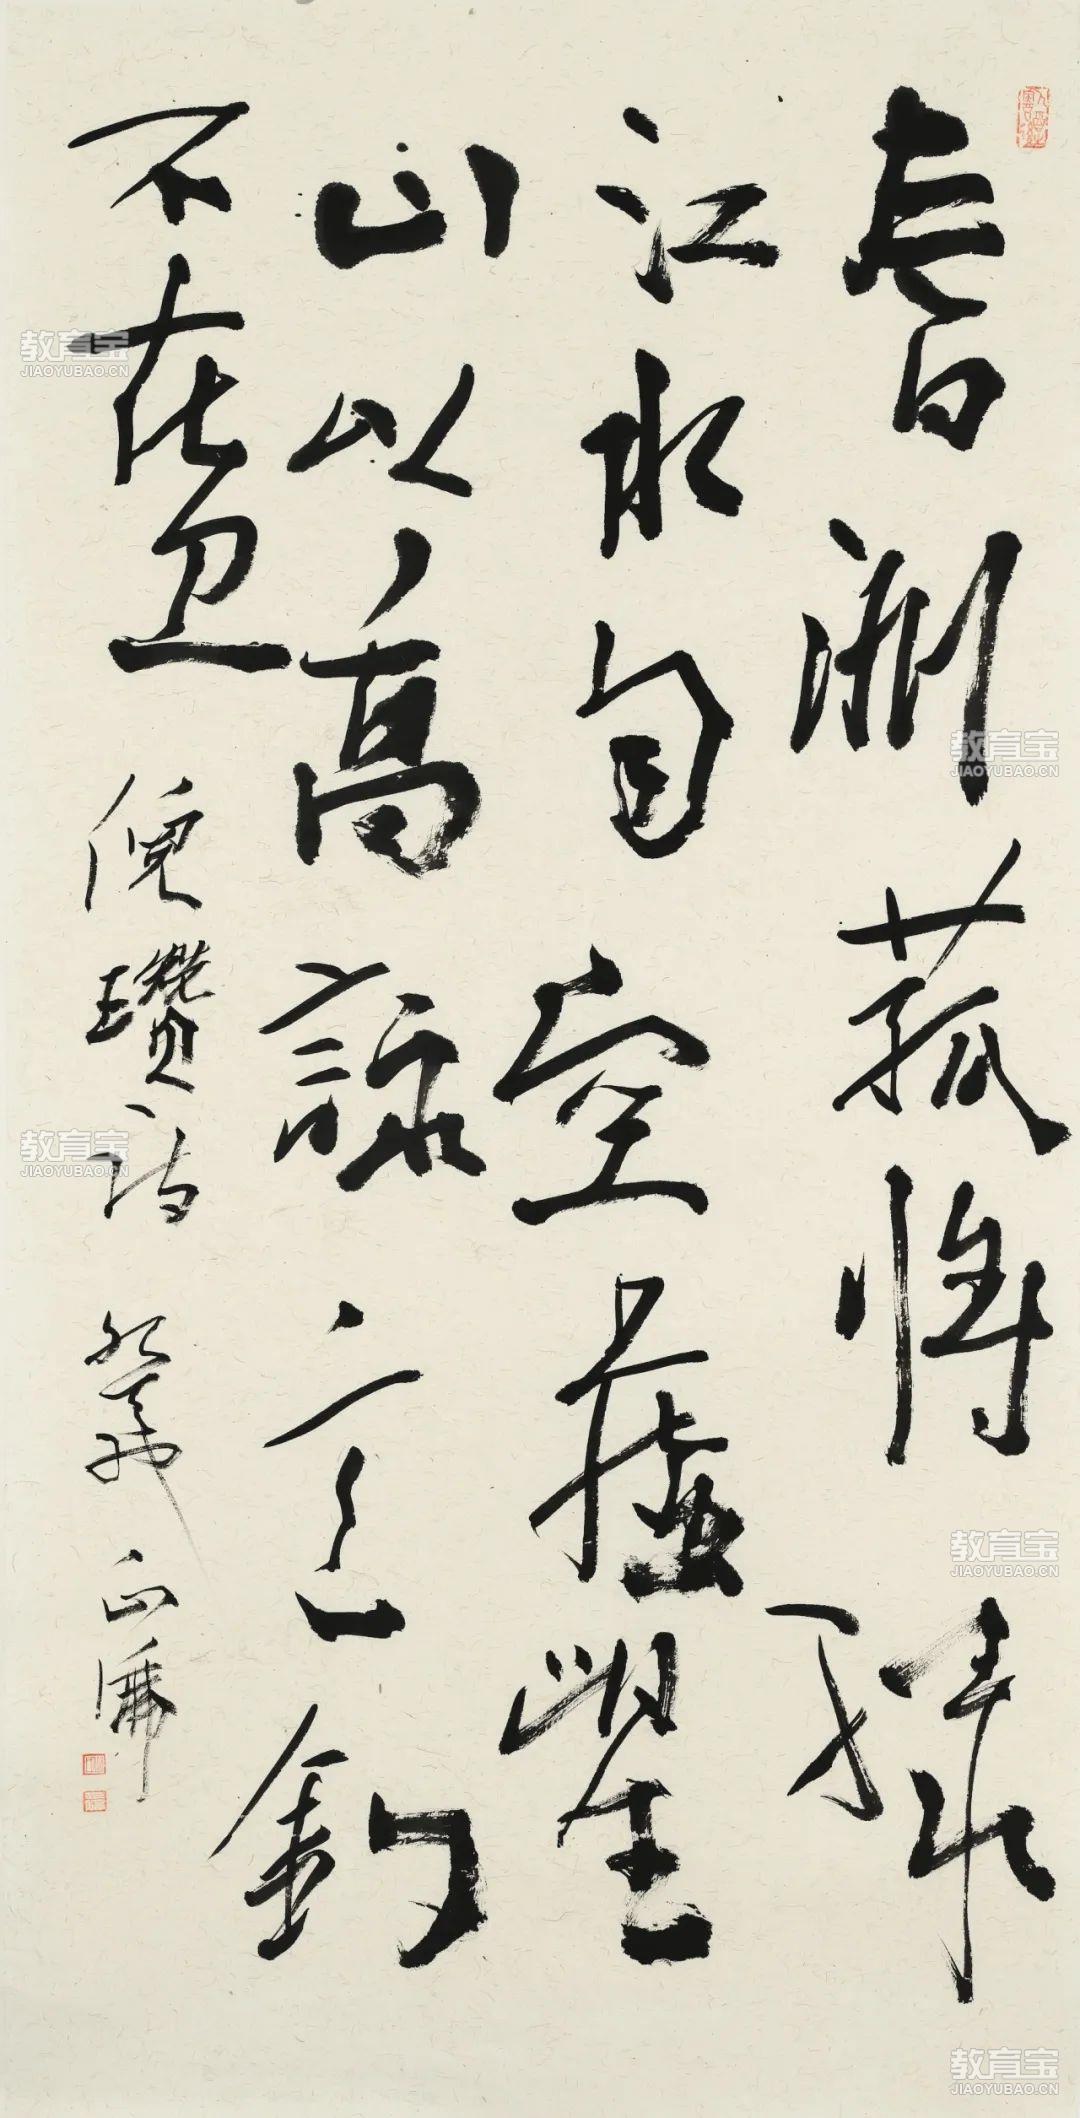 春洲菰將緑
江水自空虚望
山以高詠意釣
不在魚 倪瓚詩
教育宝
JIAOYUBAO.CN
教育宝
JIAOYUBAO.CN
教育宝
JIAOYUBAO.CN
教育宝
JIAOYUBAO.CN
教育宝
JIAOYUBAO.CN